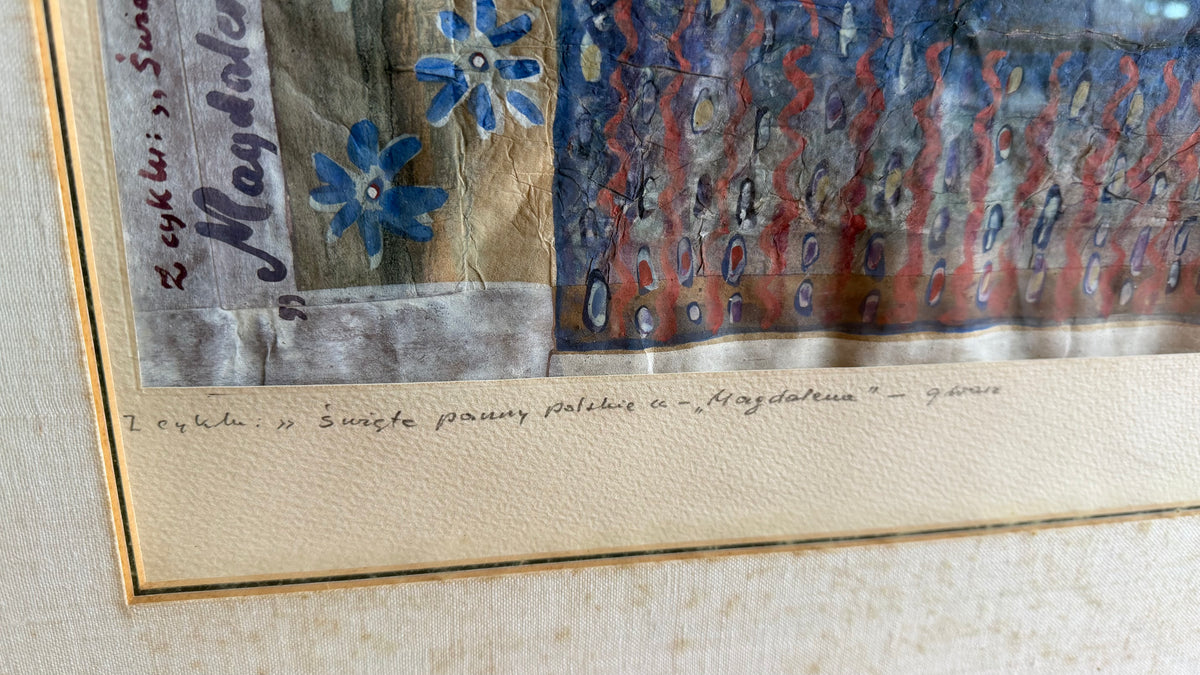 Z cyklu: „ Świę
„Magdalen
Z cyklu: „ Święte panny polskie “ – „Magdalena” – gwasz